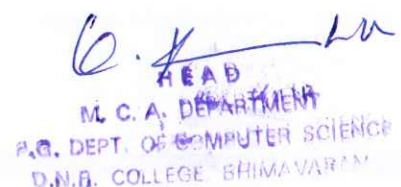 HEAD
M. C. A. DEPARTMENT
P.G. DEPT. OF COMPUTER SCIENCE
D.N.R. COLLEGE BHIMAVARAM